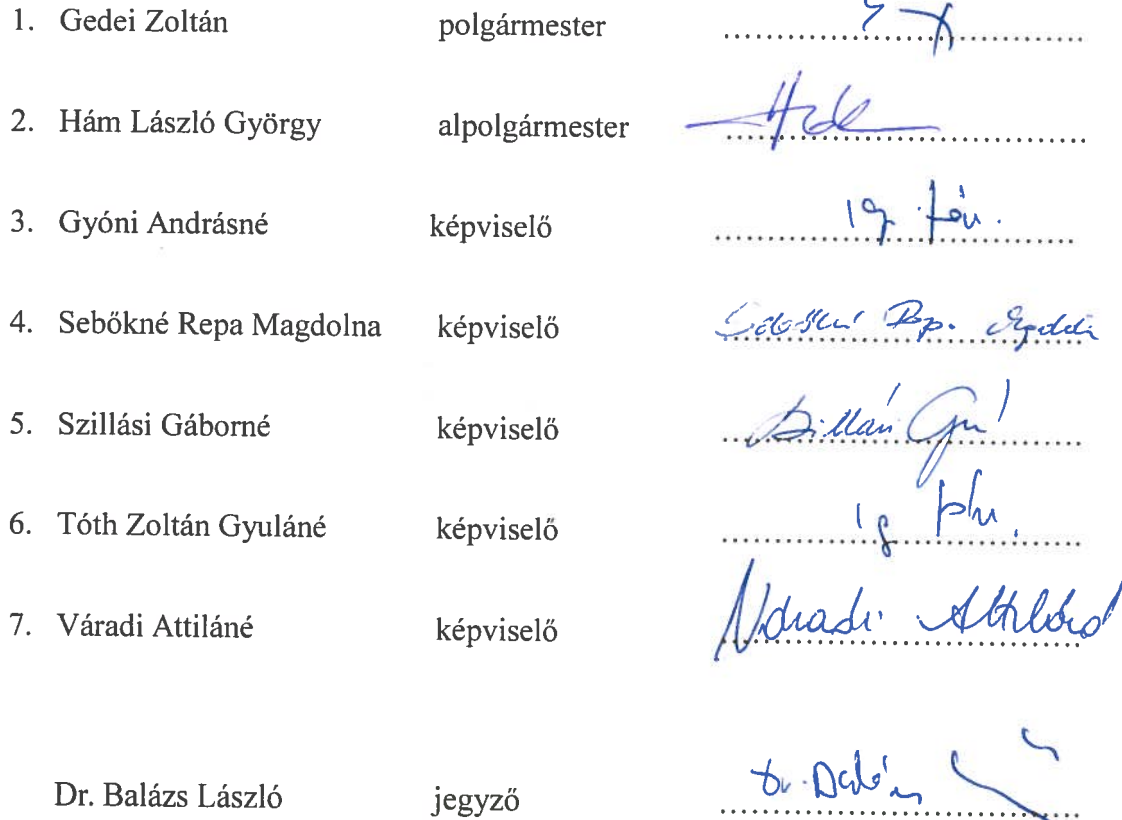 1. Gedei Zoltán polgármester
2. Hám László György alpolgármester
3. Gyóni Andrásné képviselő
4. Sebőkné Repa Magdolna képviselő
5. Szillási Gáborné képviselő
6. Tóth Zoltán Gyuláné képviselő
7. Váradi Attiláné képviselő Váradi Attiláné
Dr. Balázs László jegyző